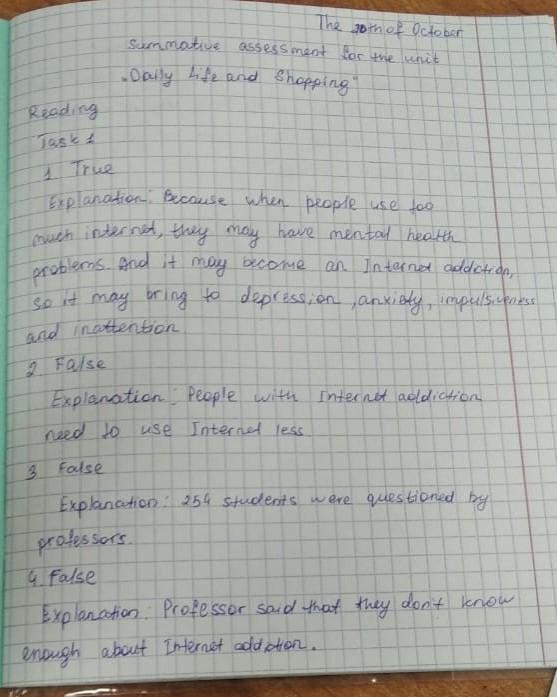 The 20th of October
summative assessment for the unit
„Daily life and Shopping"
Reading
Task 1
1 True
Explanation: Because when people use too
much internet, they may have mental health
problems. And it may become an Internet addiction,
so it may bring to depression, anxiety, impulsiveness
and inattention
2 False
Explanation: People with Internet addiction
need to use Internet less
3 False
Explanation: 254 students were questioned by
professors.
4 False
Explanation: Professor said that they don't know
enough about Internet addiction.